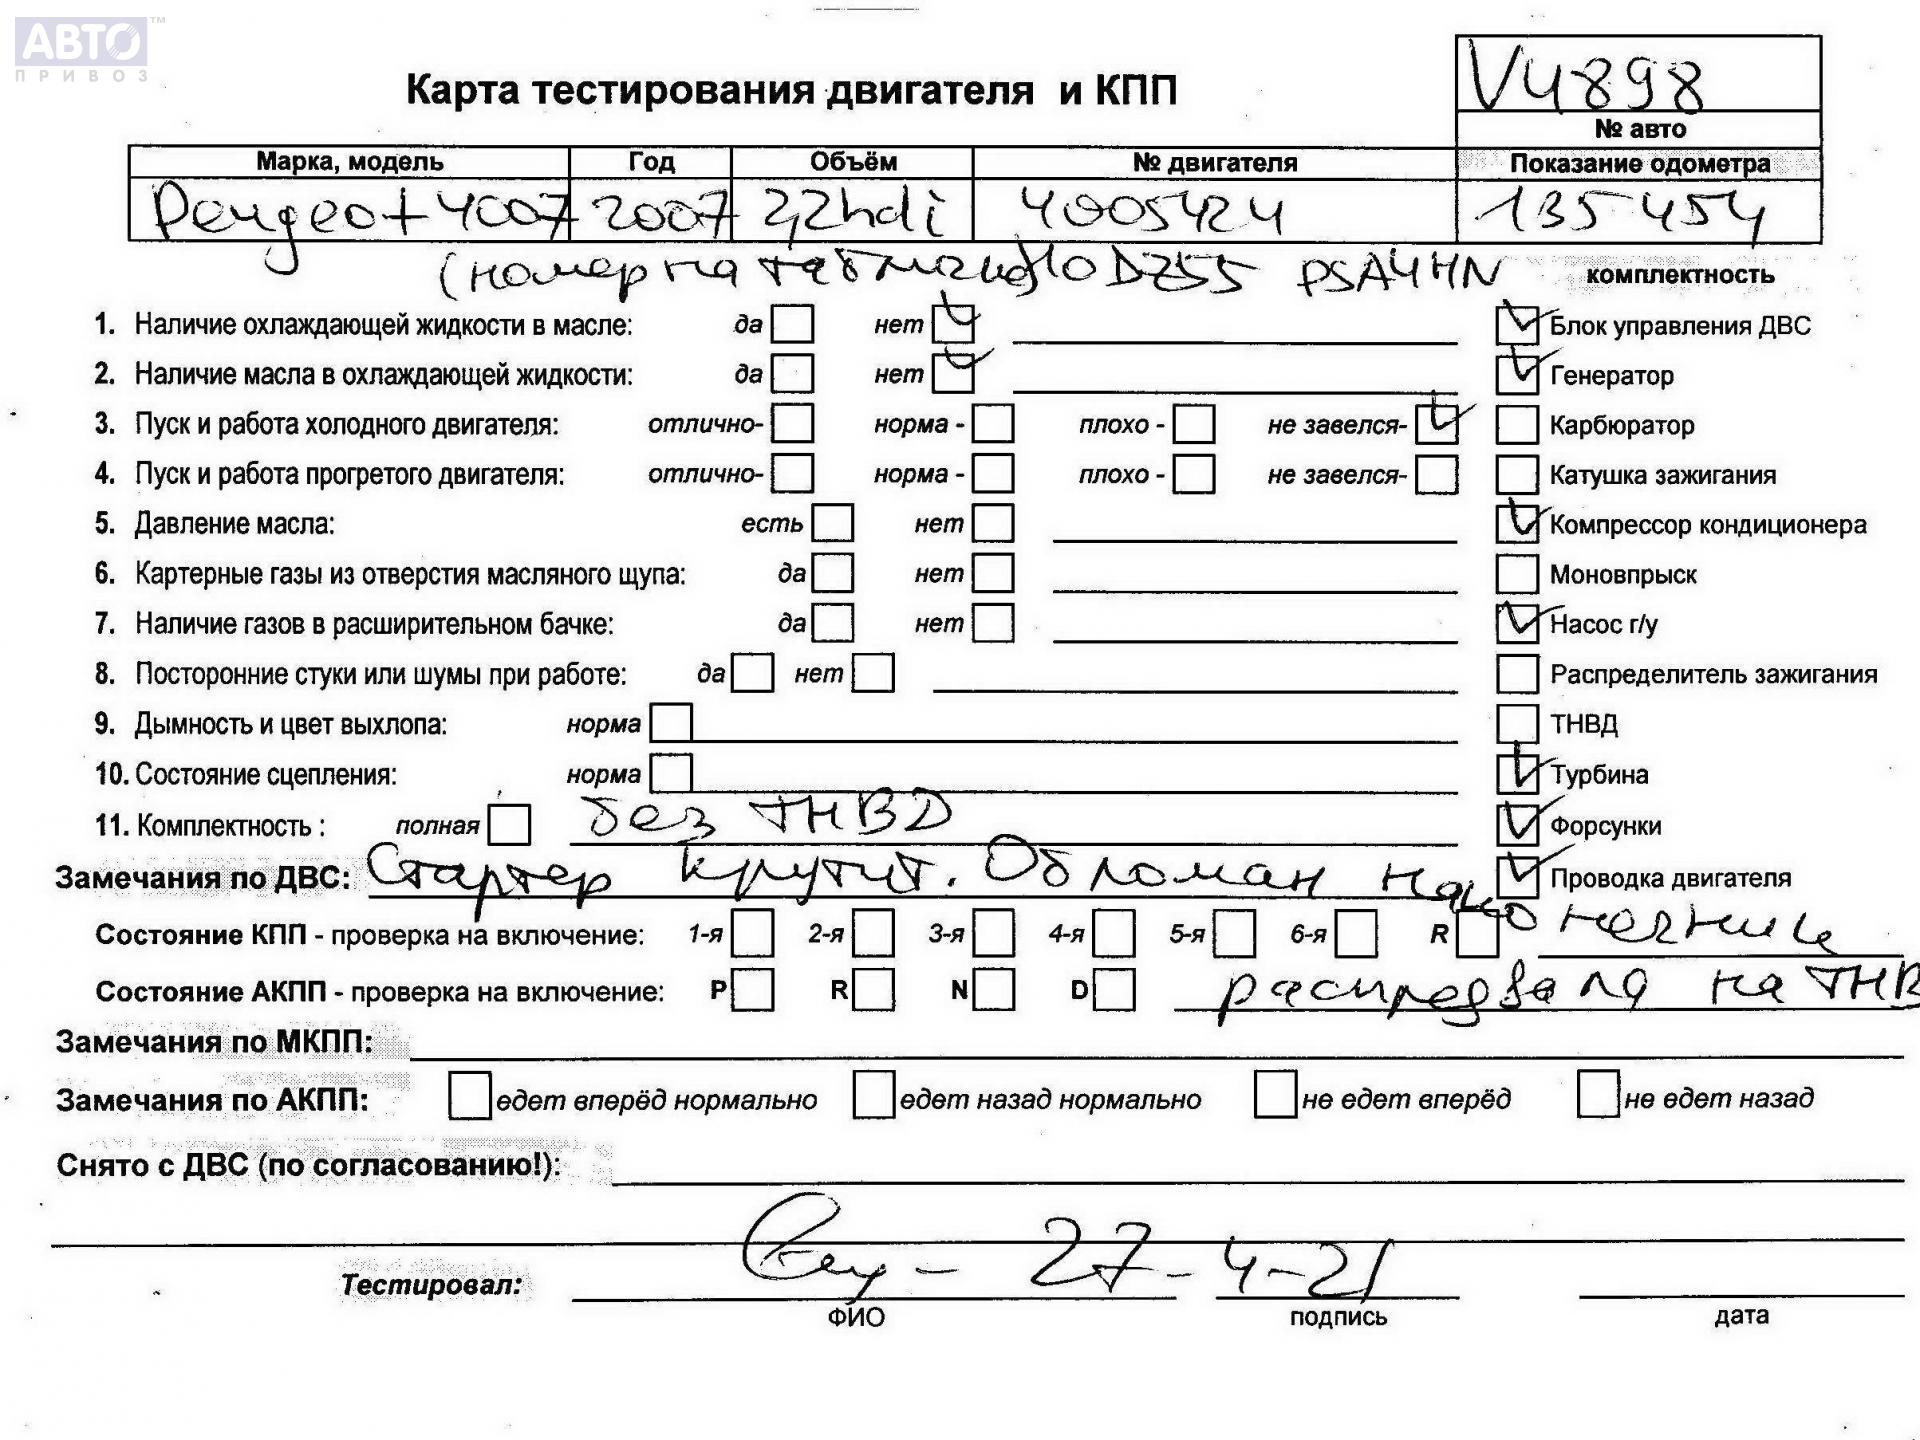 АВТО™
ПРИВОЗ
V4898
Карта тестирования двигателя и КПП
№ авто
Марка, модель Год Объём № двигателя Показание одометра
Peugeot 4007 2007 2,2hdi 4005424 135454
(номер на табличке 10DZ55 PSA4HN комплектность
1. Наличие охлаждающей жидкости в масле: да нет Блок управления ДВС
2. Наличие масла в охлаждающей жидкости: да нет Генератор
3. Пуск и работа холодного двигателя: отлично- норма - плохо - не завелся- Карбюратор
4. Пуск и работа прогретого двигателя: отлично- норма - плохо - не завелся- Катушка зажигания
5. Давление масла: есть нет Компрессор кондиционера
6. Картерные газы из отверстия масляного щупа: да нет Моновпрыск
7. Наличие газов в расширительном бачке: да нет Насос г/у
8. Посторонние стуки или шумы при работе: да нет Распределитель зажигания
9. Дымность и цвет выхлопа: норма ТНВД
10. Состояние сцепления: норма Турбина
11. Комплектность : полная без ТНВД Форсунки
Замечания по ДВС: Стартер крутит. Обломан наконечник Проводка двигателя
Состояние КПП - проверка на включение: 1-я 2-я 3-я 4-я 5-я 6-я R
Состояние АКПП - проверка на включение: P R N D распредвала на ТНВ
Замечания по МКПП:
Замечания по АКПП: едет вперёд нормально едет назад нормально не едет вперёд не едет назад
Снято с ДВС (по согласованию!):
Тестировал: 27-4-21
ФИО подпись дата